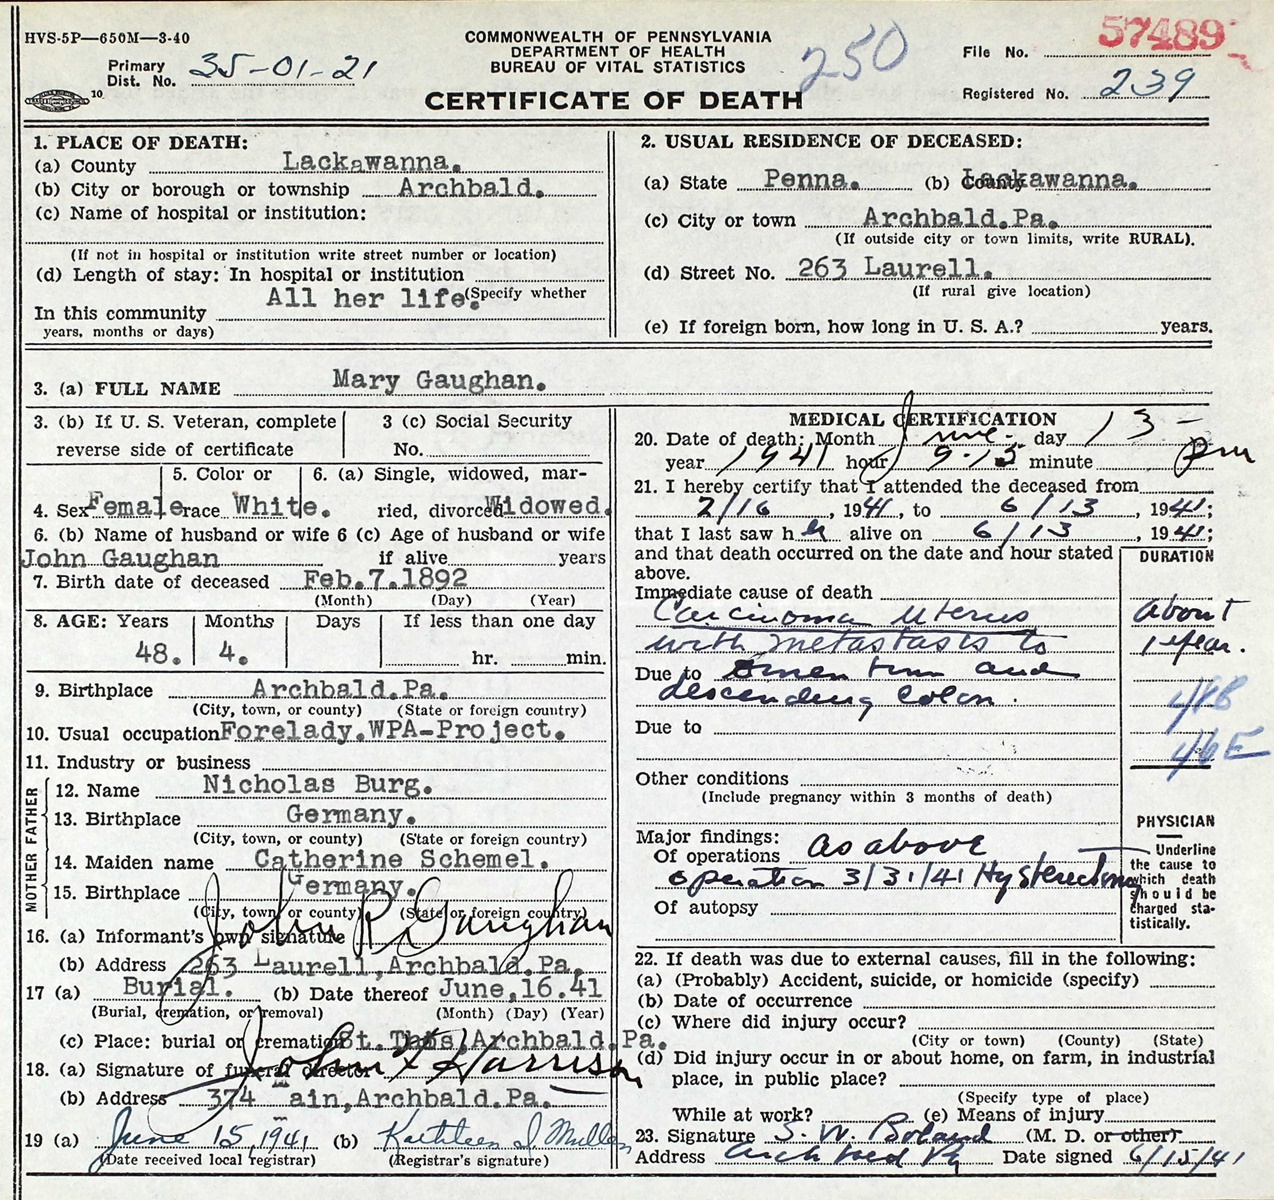 HVS-5P—650M—3-40
COMMONWEALTH OF PENNSYLVANIA
DEPARTMENT OF HEALTH
BUREAU OF VITAL STATISTICS
CERTIFICATE OF DEATH
Primary Dist. No. 35-01-21
10
250
File No. 57489
Registered No. 239
1. PLACE OF DEATH:
(a) County Lackawanna.
(b) City or borough or township Archbald.
(c) Name of hospital or institution:
(If not in hospital or institution write street number or location)
(d) Length of stay: In hospital or institution
All her life. (Specify whether
In this community
years, months or days)
2. USUAL RESIDENCE OF DECEASED:
(a) State Penna. (b) County Lackawanna.
(c) City or town Archbald.Pa.
(If outside city or town limits, write RURAL).
(d) Street No. 263 Laurell.
(If rural give location)
(e) If foreign born, how long in U. S. A.? years.
3. (a) FULL NAME Mary Gaughan.
3. (b) If U. S. Veteran, complete
reverse side of certificate
3 (c) Social Security
No.
4. Sex Female
5. Color or
race White.
6. (a) Single, widowed, mar-
ried, divorced Widowed.
6. (b) Name of husband or wife
John Gaughan
6 (c) Age of husband or wife
if alive years
7. Birth date of deceased Feb.7.1892
(Month) (Day) (Year)
8. AGE: Years Months Days If less than one day
48. 4. hr. min.
9. Birthplace Archbald.Pa.
(City, town, or county) (State or foreign country)
10. Usual occupation Forelady.WPA-Project.
11. Industry or business
FATHER
12. Name Nicholas Burg.
13. Birthplace Germany.
(City, town, or county) (State or foreign country)
MOTHER
14. Maiden name Catherine Schemel.
15. Birthplace Germany.
(City, town or county) (State or foreign country)
16. (a) Informant's own signature John P. Gaughan
(b) Address 263 Laurell,Archbald.Pa.
17 (a) Burial. (b) Date thereof June,16.41
(Burial, cremation, or removal) (Month) (Day) (Year)
(c) Place: burial or cremation St. Thos,Archbald.Pa.
18. (a) Signature of funeral director John F Harrison
(b) Address 374 Main,Archbald.Pa.
19 (a) June 15, 1941 (b) Kathleen J. Mullen
(Date received local registrar) (Registrar's signature)
MEDICAL CERTIFICATION
20. Date of death: Month June - day 13 -
year 1941 hour 9.15 minute pm
21. I hereby certify that I attended the deceased from
2/16, 1941, to 6/13, 1941;
that I last saw her alive on 6/13, 1941;
and that death occurred on the date and hour stated
above.
DURATION
Immediate cause of death
Carcinoma uterus about
with metastasis to 1 year.
Due to omentum and
descending colon.
48B
Due to
46E
Other conditions
(Include pregnancy within 3 months of death)
Major findings:
Of operations as above
operation 3/31/41 Hysterectomy
Of autopsy
PHYSICIAN
Underline
the cause to
which death
should be
charged sta-
tistically.
22. If death was due to external causes, fill in the following:
(a) (Probably) Accident, suicide, or homicide (specify)
(b) Date of occurrence
(c) Where did injury occur?
(City or town) (County) (State)
(d) Did injury occur in or about home, on farm, in industrial
place, in public place?
(Specify type of place)
While at work? (e) Means of injury
23. Signature S. W. Boland (M. D. or other)
Address Archbald Pa Date signed 6/15/41